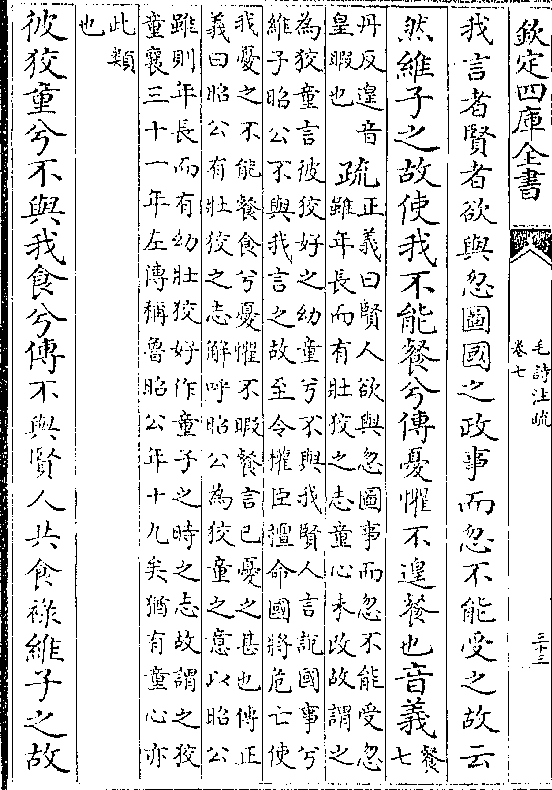 欽定四庫全書
毛詩注疏
卷七
三十三
我言者賢者欲與忽圖國之政事而忽不能受之故云
然維子之故使我不能餐兮傳憂懼不遑餐也音義
餐
七
丹反遑音
皇暇也
疏
正義曰賢人欲與忽圖事而忽不能受忽
雖年長而有壯狡之志童心未改故謂之
為狡童言彼狡好之幼童兮不與我賢人言說國事兮
維子昭公不與我言之故至令權臣擅命國將危亡使
我憂之不能餐食兮憂懼不暇餐言已憂之甚也傳正
義曰昭公有壯狡之志解呼昭公為狡童之意以昭公
雖則年長而有幼壯狡好作童子之時之志故謂之狡
童襄三十一年左傳稱魯昭公年十九矣猶有童心亦
此類
也
彼狡童兮不與我食兮傳不與賢人共食祿維子之故